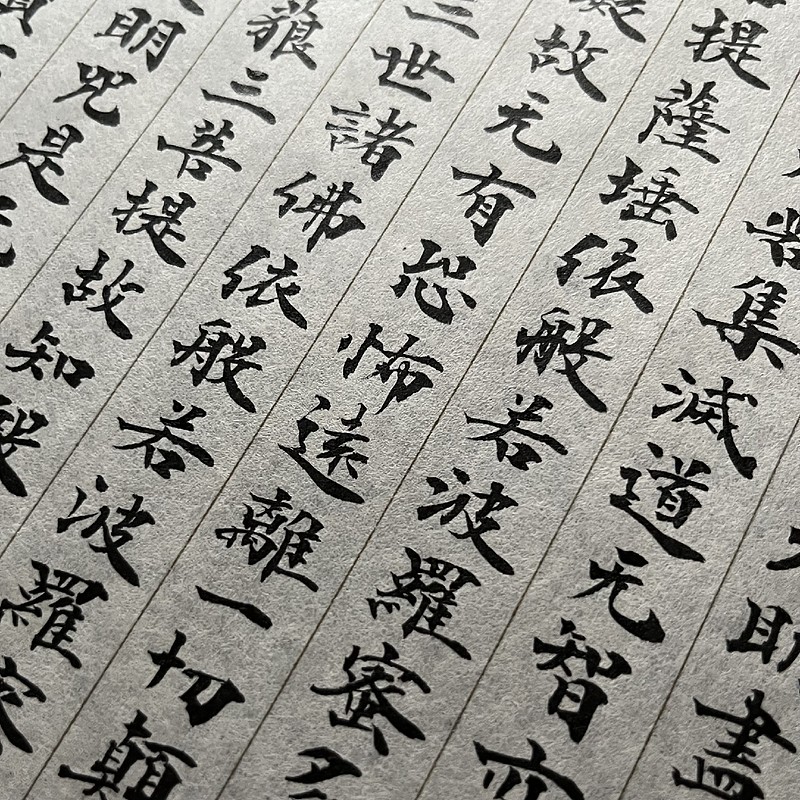 明盡
苦集滅道无智亦
提薩埵依般若波羅蜜多
礙故无有恐怖遠離一切顛
三世諸佛依般若波羅蜜
藐三菩提故知般
明咒是无